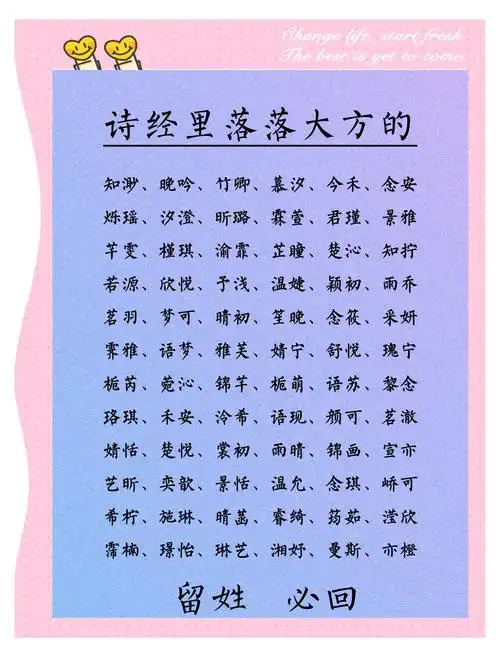 Change life, start fresh.
The best is yet to come.
诗经里落落大方的
知渺、晚吟、竹卿、慕汐、今禾、念安
烁瑶、汐澄、昕璐、霖萱、君瑾、景雅
芊雯、槿琪、渝霏、芷瞳、楚沁、知拧
若源、欣悦、予浅、温婕、颖初、雨乔
茗羽、梦可、晴初、笙晚、念筱、采妍
霁雅、语梦、雅芙、婧宁、舒悦、瑰宁
栀芮、菀沁、锦芊、栀萌、语苏、黎念
珞琪、禾安、泠希、语现、颜可、茗澈
婧恬、楚悦、棠初、雨晴、锦画、宣亦
艺昕、奕歆、景恬、温允、念琪、峤可
希柠、施琳、晴菡、睿绮、筠茹、滢欣
霈楠、璟怡、琳艺、湘妤、曼斯、亦橙
留姓 必回